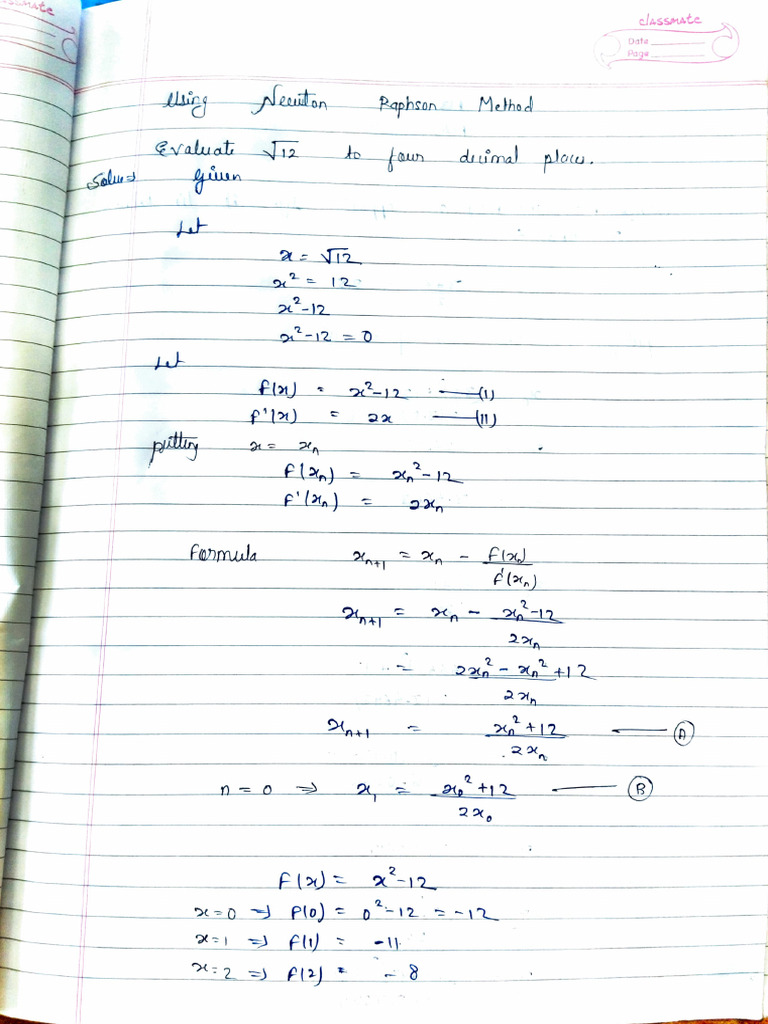 classmate
Date
Page
Using Newton Raphson Method
Evaluate √12 to four decimal place.
Solve⇒ Given
Let
x = √12
x² = 12
x²-12
x²-12 = 0
Let
f(x) = x²-12 —(I)
f'(x) = 2x —(II)
putting x = xₙ
f(xₙ) = xₙ²-12
f'(xₙ) = 2xₙ
Formula xₙ₊₁ = xₙ - f(xₙ)/f'(xₙ)
xₙ₊₁ = xₙ - (xₙ²-12)/2xₙ
= (2xₙ² - xₙ² + 12)/2xₙ
xₙ₊₁ = (xₙ² + 12)/2xₙ — Ⓐ
n = 0 ⇒ x₁ = (x₀² + 12)/2x₀ — Ⓑ
f(x) = x²-12
x=0 ⇒ f(0) = 0²-12 = -12
x=1 ⇒ f(1) = -11
x=2 ⇒ f(2) = -8